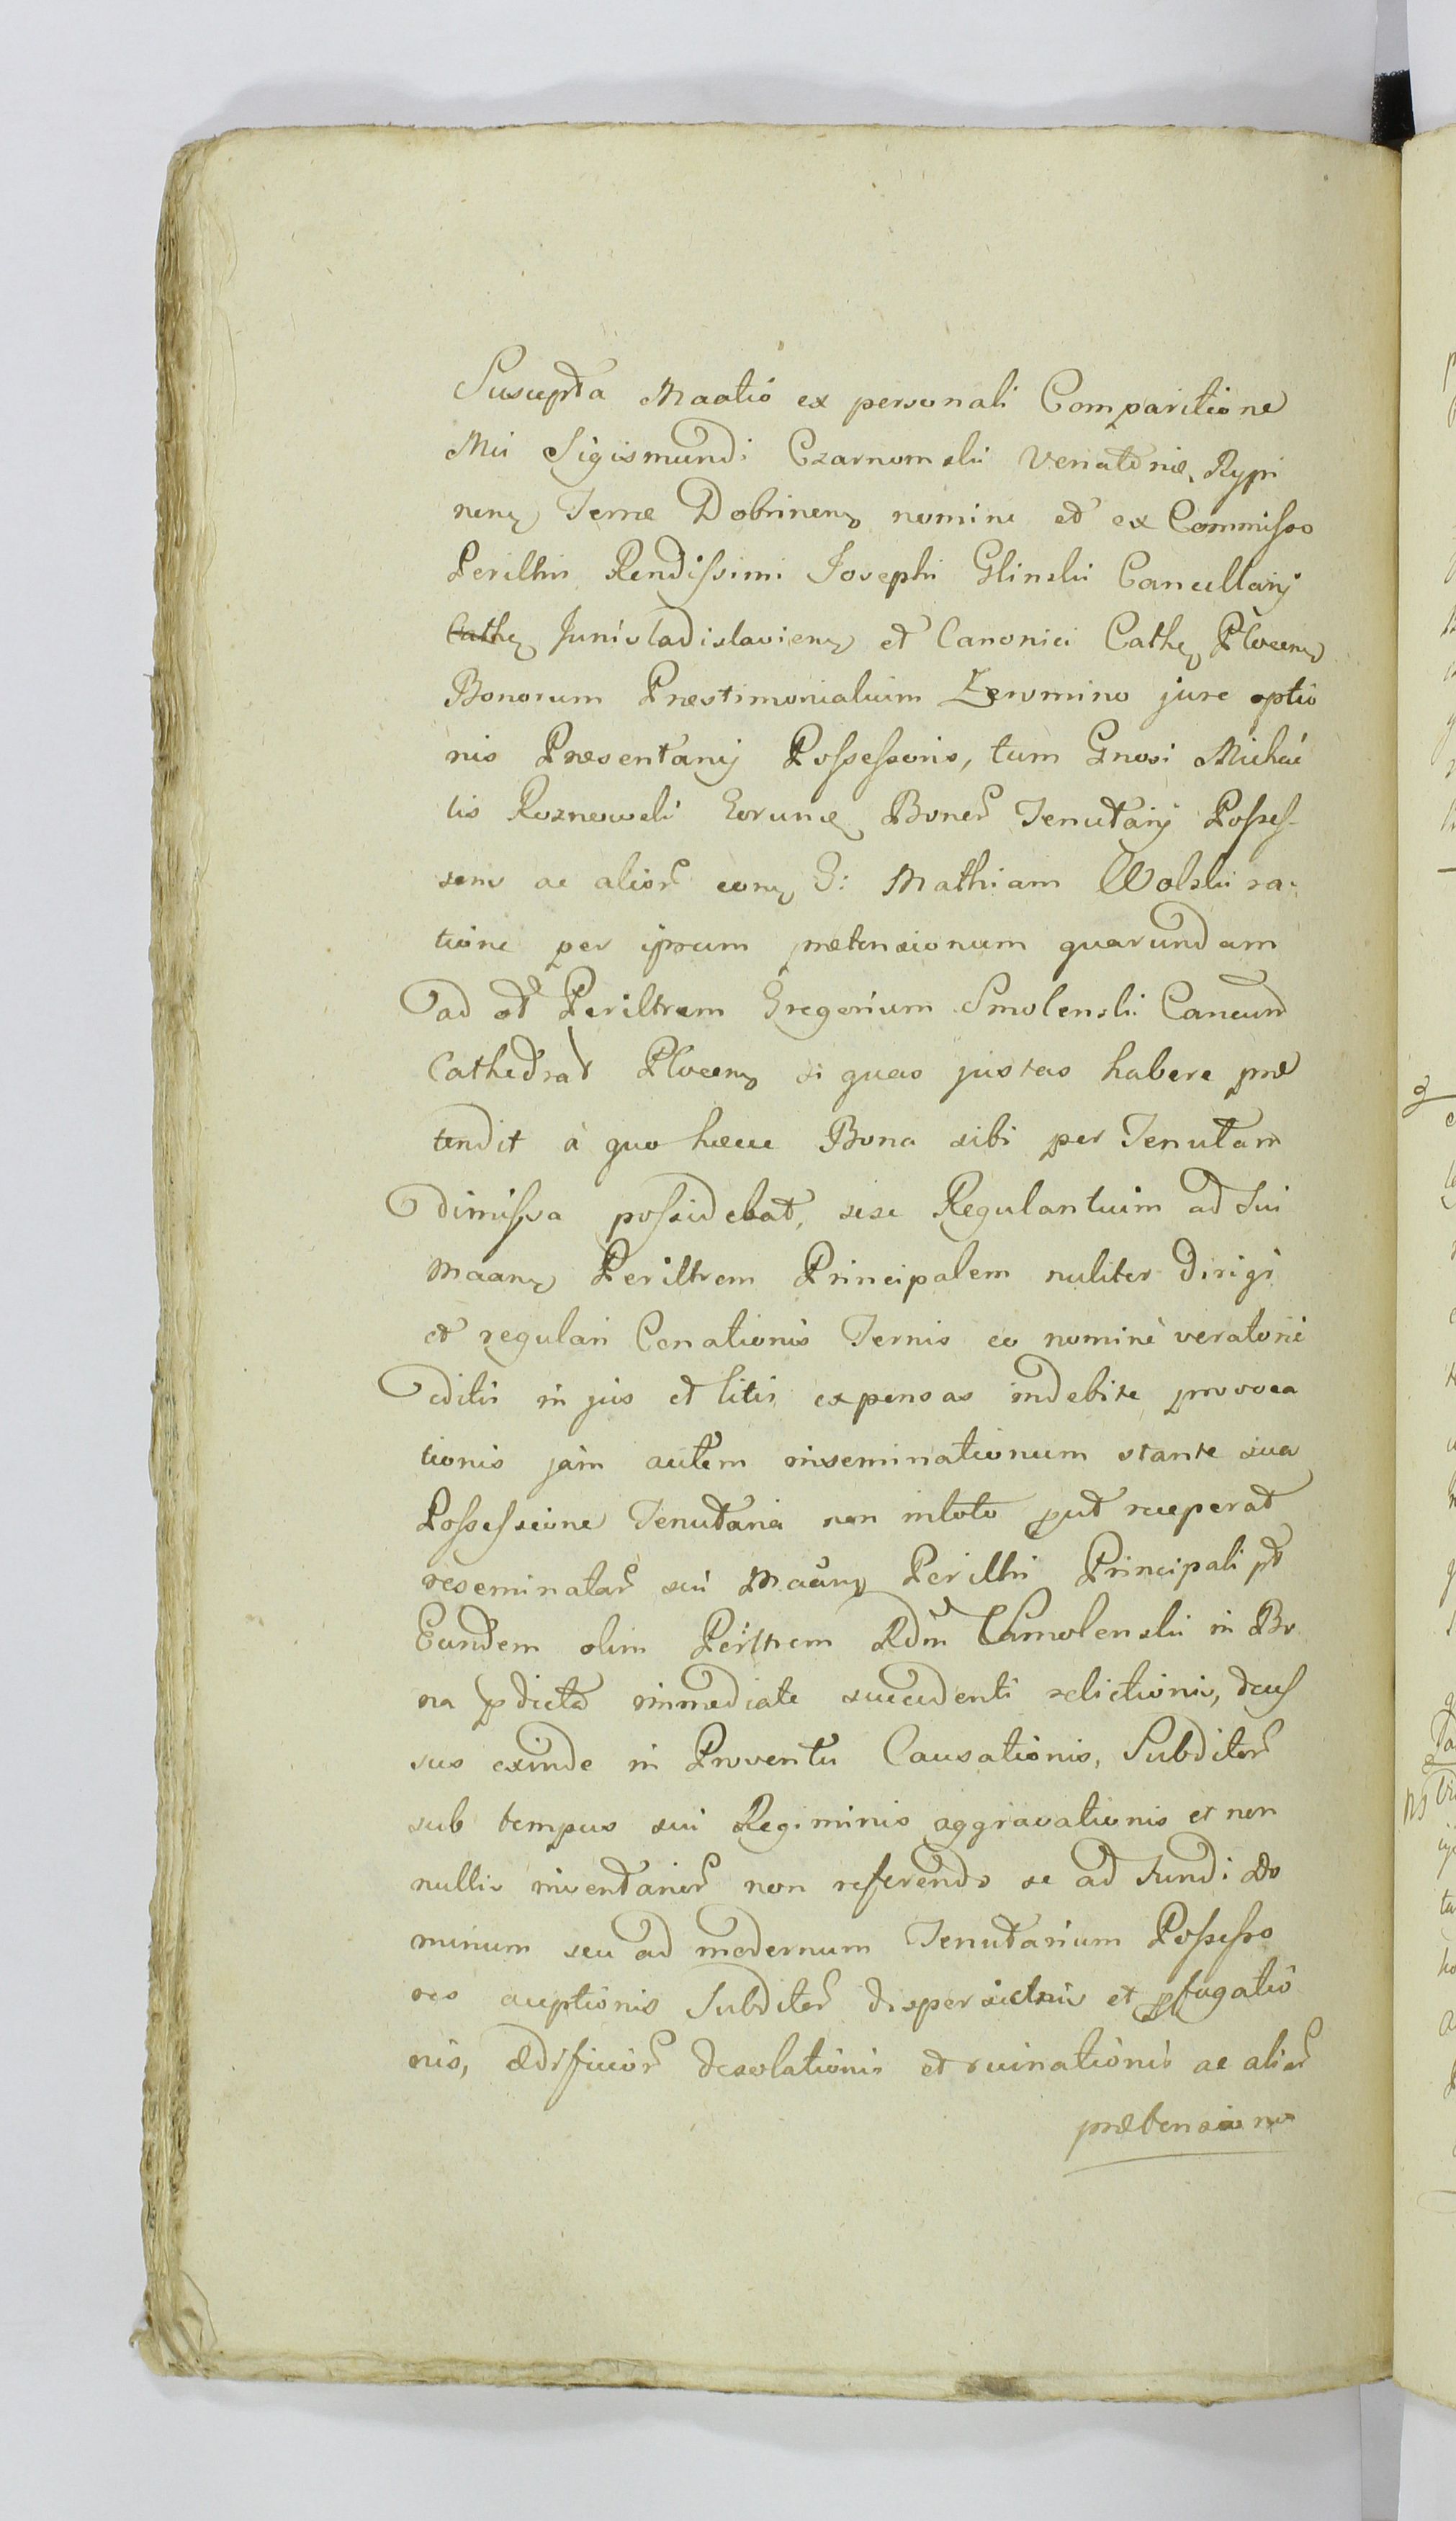 Suscepta Maatio ex personali Comparitione
Mci Sigismundi Czarnomskii Venatoris Rypi
nens Terræ Dobrinens nomine et ex Commisso
Perillris Rendissimi Josephi Glinskii Cancellarij
Cathe Junivladislaviens et Canonici Cathe Plocens
Bonorum Præstimonialium Zeromino jure optio
nis Præsentanij Possessoris, tum Gnosi Michaë
lis Roznowski Eorunde Bonor Tenutarij Posses-
soris ac alior cons G: Mathiam Wolski ra-
tione per ipsum prætensionum quarundam
ad ol Perillrem Gregorium Smolenski Cancum
Cathedral Plocens si quas justas habere præ
tendit à quo hæcce Bona sibi per Tenutam
dimissa possidebat, sese Regulantium ad sui
Maans Perillrem Principalem nuliter dirigi
et regulari Conationis Ternis eo nominè
editis in jus et litis expensas indebite provoca
tionis jàm autem inseminationum stante sua
Possessione Tenutaria non intoto put receperat
reseminatar sui Maans Perillri Principali pt
Eundem olim Perillrem Rdm Smolenskii in Bo
na pdicta immediate succedenti relictionis,
sus exinde in Proventu Causationis, Subditor
sub tempus sui Regiminis aggravationis et non
nullis inventarior non referendo se ad Fundi Do
minum seu ad modernum Tenutarium Possesso
res acceptionis Subditor dispersionis et pfugatio
nis, ædificior desolationis et ruinationis ac alior
prætensionu